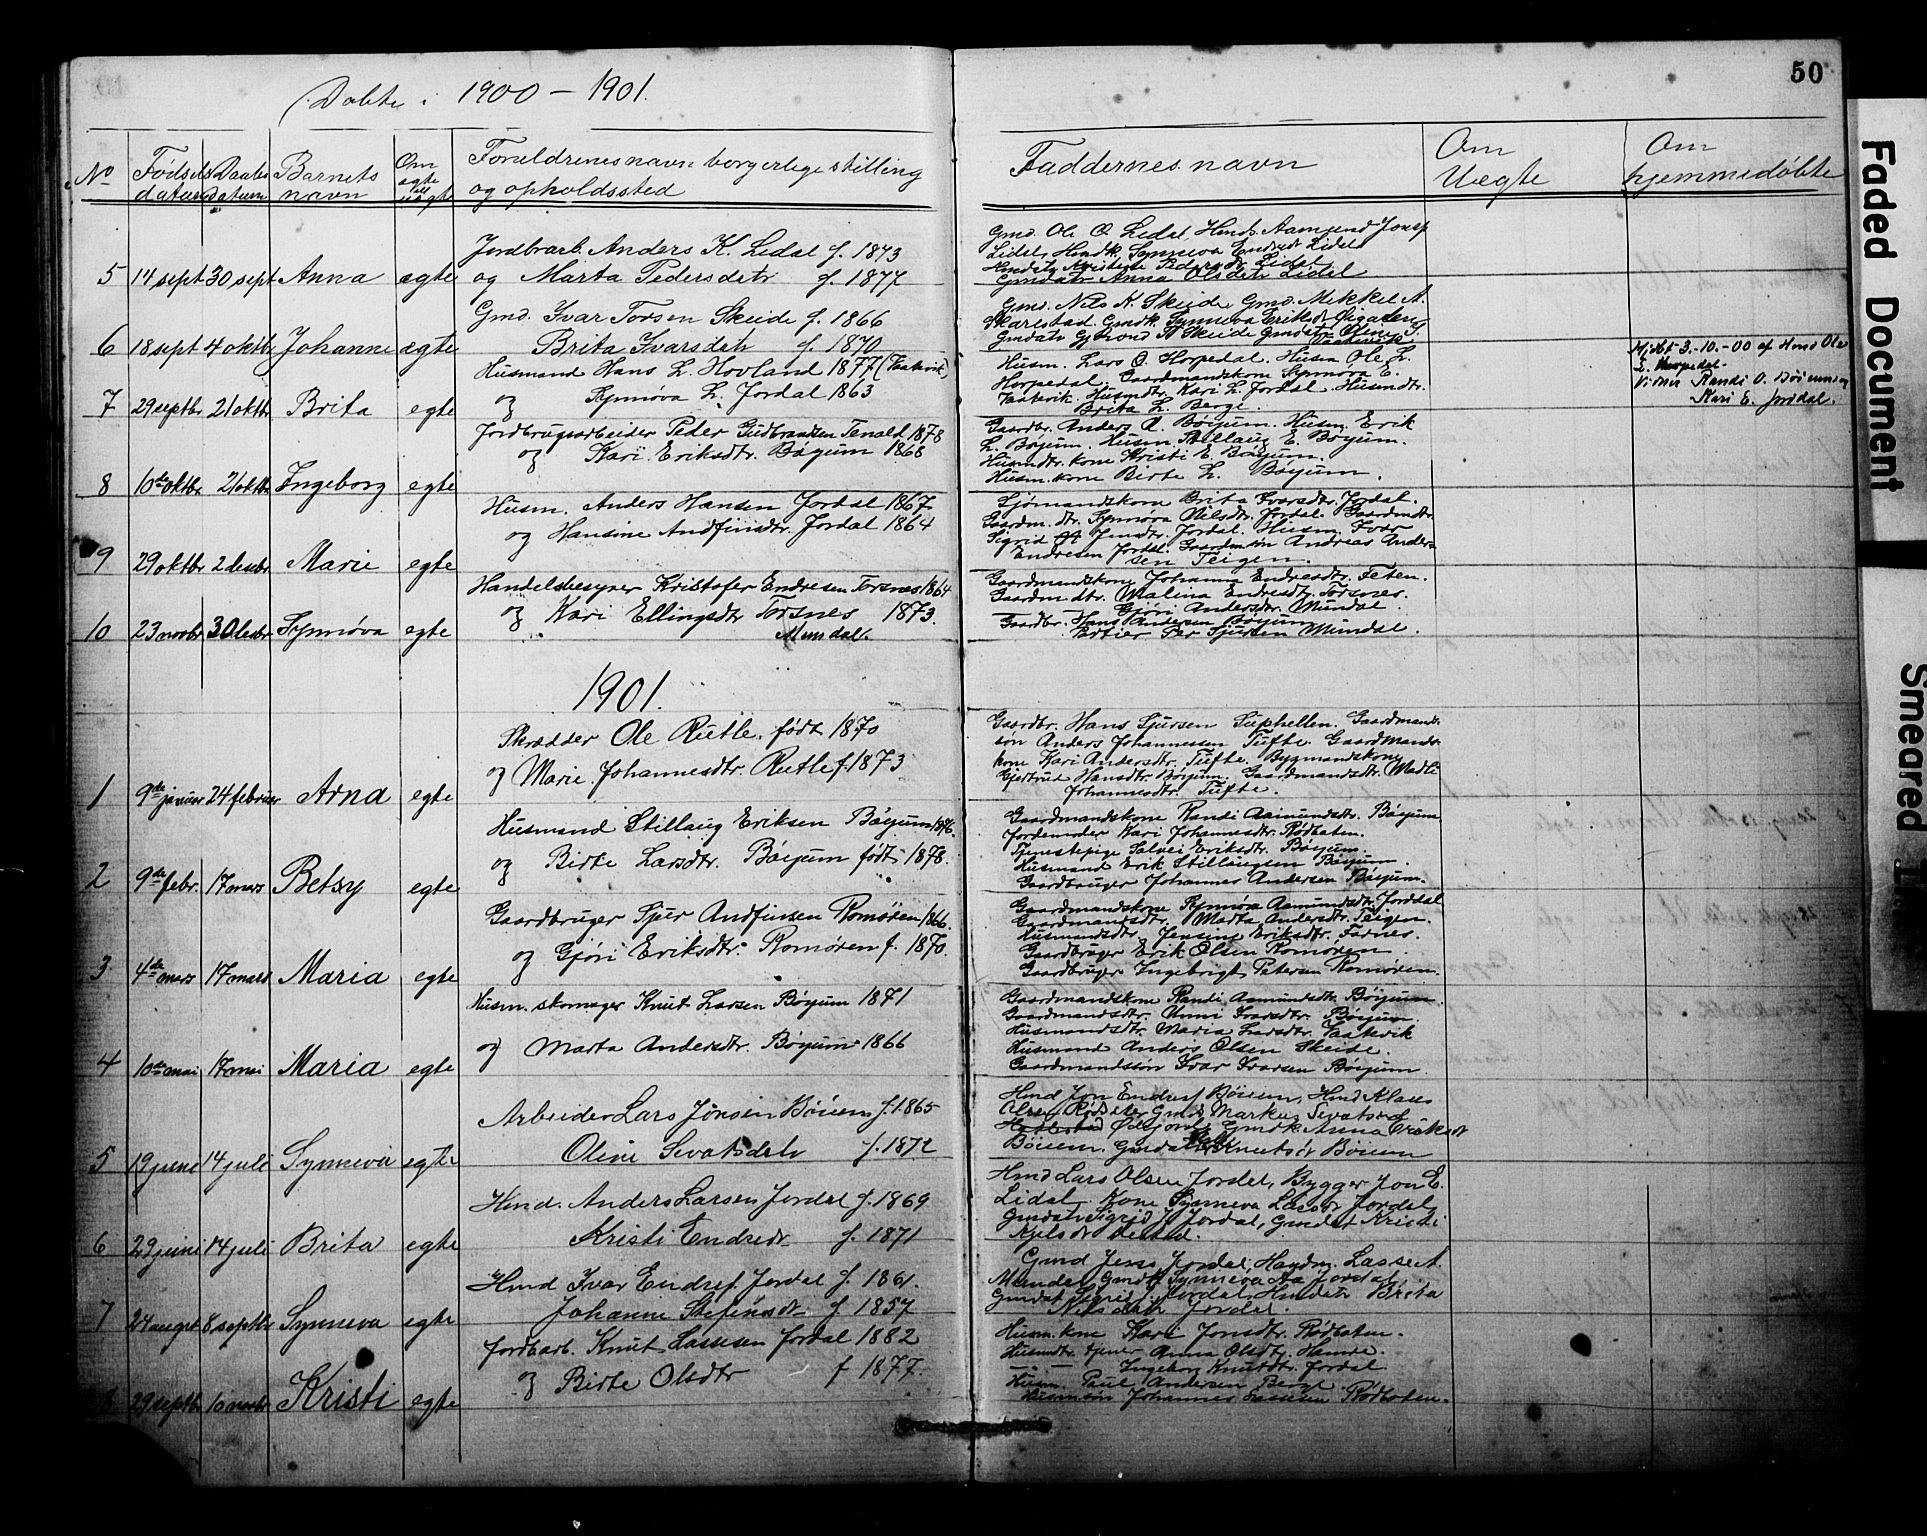 50
Døbte i 1900 – 1901.
No
Fødsels datum
Daabs Datum
Barnets navn
Om egte ell uegte
Forældrenes navn borgerlige stilling
og opholdssted
Faddernes navn
Om Uegte
Om hjemmedøbte
5 14 sept 30 sept Anna ægte
Jordbrarb. Anders K. Lidal f. 1873
og Marta Pedersdatr f. 1877
Gmd. Ole O. Lidal,
Lidal, Hmdk. Synneva Endresdr Lidal
Gmdatr Anna Olsdatr Lidal
6 18 sept 4 oktbr Johanne ægte
Gmd. Ivar Torsen Skeide f. 1866
Brita Ivarsdatr f. 1870
Gmd. Nils K. Skeide, Gmd. Mikkel A.
Skarlestad. Gmdk. Synneva Eriksdr
7 29 septbr 21 oktbr Brita egte
Husmand Hans L. Hovland 1877 (Vaatevik)
og Synnøva L. Jordal 1863
Husm. Lars O. Horpedal. Husm Ole L.
Horpedal. Gaardmandskone Synnøva E.
Vaatevik. Husmdtr. Kari L. Jordal. Husmdtr.
Brita L. Berge.
Hj.dbt 3.-10.-00 af Hmd Ole
L. Horpedal.
Vidner Randi O. Bøiumseg
Kari E. Jordal.
8 10de oktbr 21 oktbr Ingeborg egte
Jordbrugsarbeider Peder Gudbrandsen 1878
og Kari Eriksdtr. Bøyum 1868
Gaardbr. Anders A. Bøyum. Husm. Erik
L. Bøyum. Husm. Stillaug E. Bøyum.
Husmdtr. kone Kristi E. Bøyum.
Husm. kone Birte L. Bøyum.
9 29 oktbr 2 decbr. Marie egte
Husm. Anders Hansen Jordal 1867
og Hansine Andfinsdtr. Jordal 1864
Sjømandskone Brita Ivarsdtr. Jordal.
Gaardm. dtr. Synnøva Nilsdtr. Jordal. Gaardmdtr.
Sigrid Jensdtr. Jordal. Husm. Ivar
Endresen Jordal. Gaardmsøn Andreas Ander-
sen Teigen.
10 23 novbr 30 decbr Synnøva egte
Handelsbestyrer Kristofer Endresen Torsnes 1864
og Kari Ellingsdtr Torsnes 1873.
Mundal.
Gaardmandskone Johanna Endresdtr. Feten.
Gaardm. dtr. Malina Endresdtr. Torsnes.
Gjøri Andersdtr. Mundal.
Gaardbr. Hans Andersen Bøyum
Portier Per Sjursen Mundal.
1901.
1 9de januar 24 februar Arna egte
Skrædder Ole Rutle, født 1870
og Marie Johannesdtr. Rutle f. 1873
Gaardbr. Hans Sjursen Suphellen. Gaardmands-
søn Anders Johannessen Tufte. Gaardmands-
kone Kari Andersdtr. Tufte. Bygmandskone
Gjertrud Hansdtr. Bøyum. Gaardmandsdtr. Madli
Johannesdtr. Tufte.
2 9de febr. 17 mars Betsy egte
Husmand Stillaug Eriksen Bøyum 1876.
og Birte Larsdtr. Bøyum født 1878.
Gaardmandskone Randi Aamundsdtr. Bøyum
Jordemoder Kari Johannesdtr. Rødbøten.
Tjenestepige Solvei Eriksdtr. Bøyum.
Husmand Erik Stillaugsen Bøyum.
Gaardbruger Johannes Andersen Bøyum.
3 4de mars 17 mars Maria egte
Gaardbruger Sjur Andfinsen Romøren 1866.
og Gjøri Eriksdtr. Romøren f. 1870.
Gaardmandskone Synnøva Aamundsdtr. Jorddal
Gaardmandsdtr. Marta Andersdtr. Teigen.
Husmandsdtr. Jensine Eriksdtr. Farnes.
Gaardbruger Erik Olsen Romøren.
Gaardbruger Ingebrigt Petersen Romøren.
4 10de mai 17 mai Maria egte
Husm. skomager Knut Larsen Bøyum 1871
og Marta Andersdtr. Bøyum 1866
Gaardmandskone Randi Aamundsdtr. Bøyum
Gaardmandsdtr. Unni Ivarsdtr. Bøyum.
Husmandsdtr. Maria Larsdtr. Vaatevik
Husmand Anders Olsen Skeide.
Gaardmandssøn Ivar Ivarsen Bøyum.
5 19 juni 14 juli Synneva egte
Arbeider Lars Jonsen Bøium f. 1865
Oline Sivatsdatr f. 1872
Hmd Jon Endresf Bøium, Hmd Klaus
Olsen Gmd Markus Sivatsen
Gmdk Anna Eriksdr
Bøium. Gmdatr Knutsdr Bøium
6 29 juni 14 juli Brita egte
Hmd. Anders Larsen Jordal f. 1869
Kristi Endresdr f. 1871
Hmd Lars Olsen Jordal, Bygger Jon E.
Lidal. Kone Synneva Lassedr Jordal,
Gmdatr Sigrid J. Jordal, Gmdat Kristi
7 24 august 8 septbr Synneva egte
Hmd Ivar Endresf. Jordal f. 1861.
Johanne Stefensdr f. 1857
Gmd Jens Jordal, Lasse A.
Mundal, Gmdk Synneva Aa Jordal
Gmdat Sigrid J. Jordal, Hmdatr Brita
Nilsdatr Jordal.
8 29 septbr 10 novbr Kristi egte
Jordbarb. Knut Lassesen Jordal 1882
og Birte Olsdtr f 1877.
Husm. kone Kari Jonsdtr. Rødbøten.
Husmdtr. tjener Anna Olsdtr. Hamre.
— . — Ingeborg Knutdtr. Jordal
Husm. Paul Andersen Berge
Husmsøn Johannes Lassesen Rødbøten.
Faded Document
Smeared